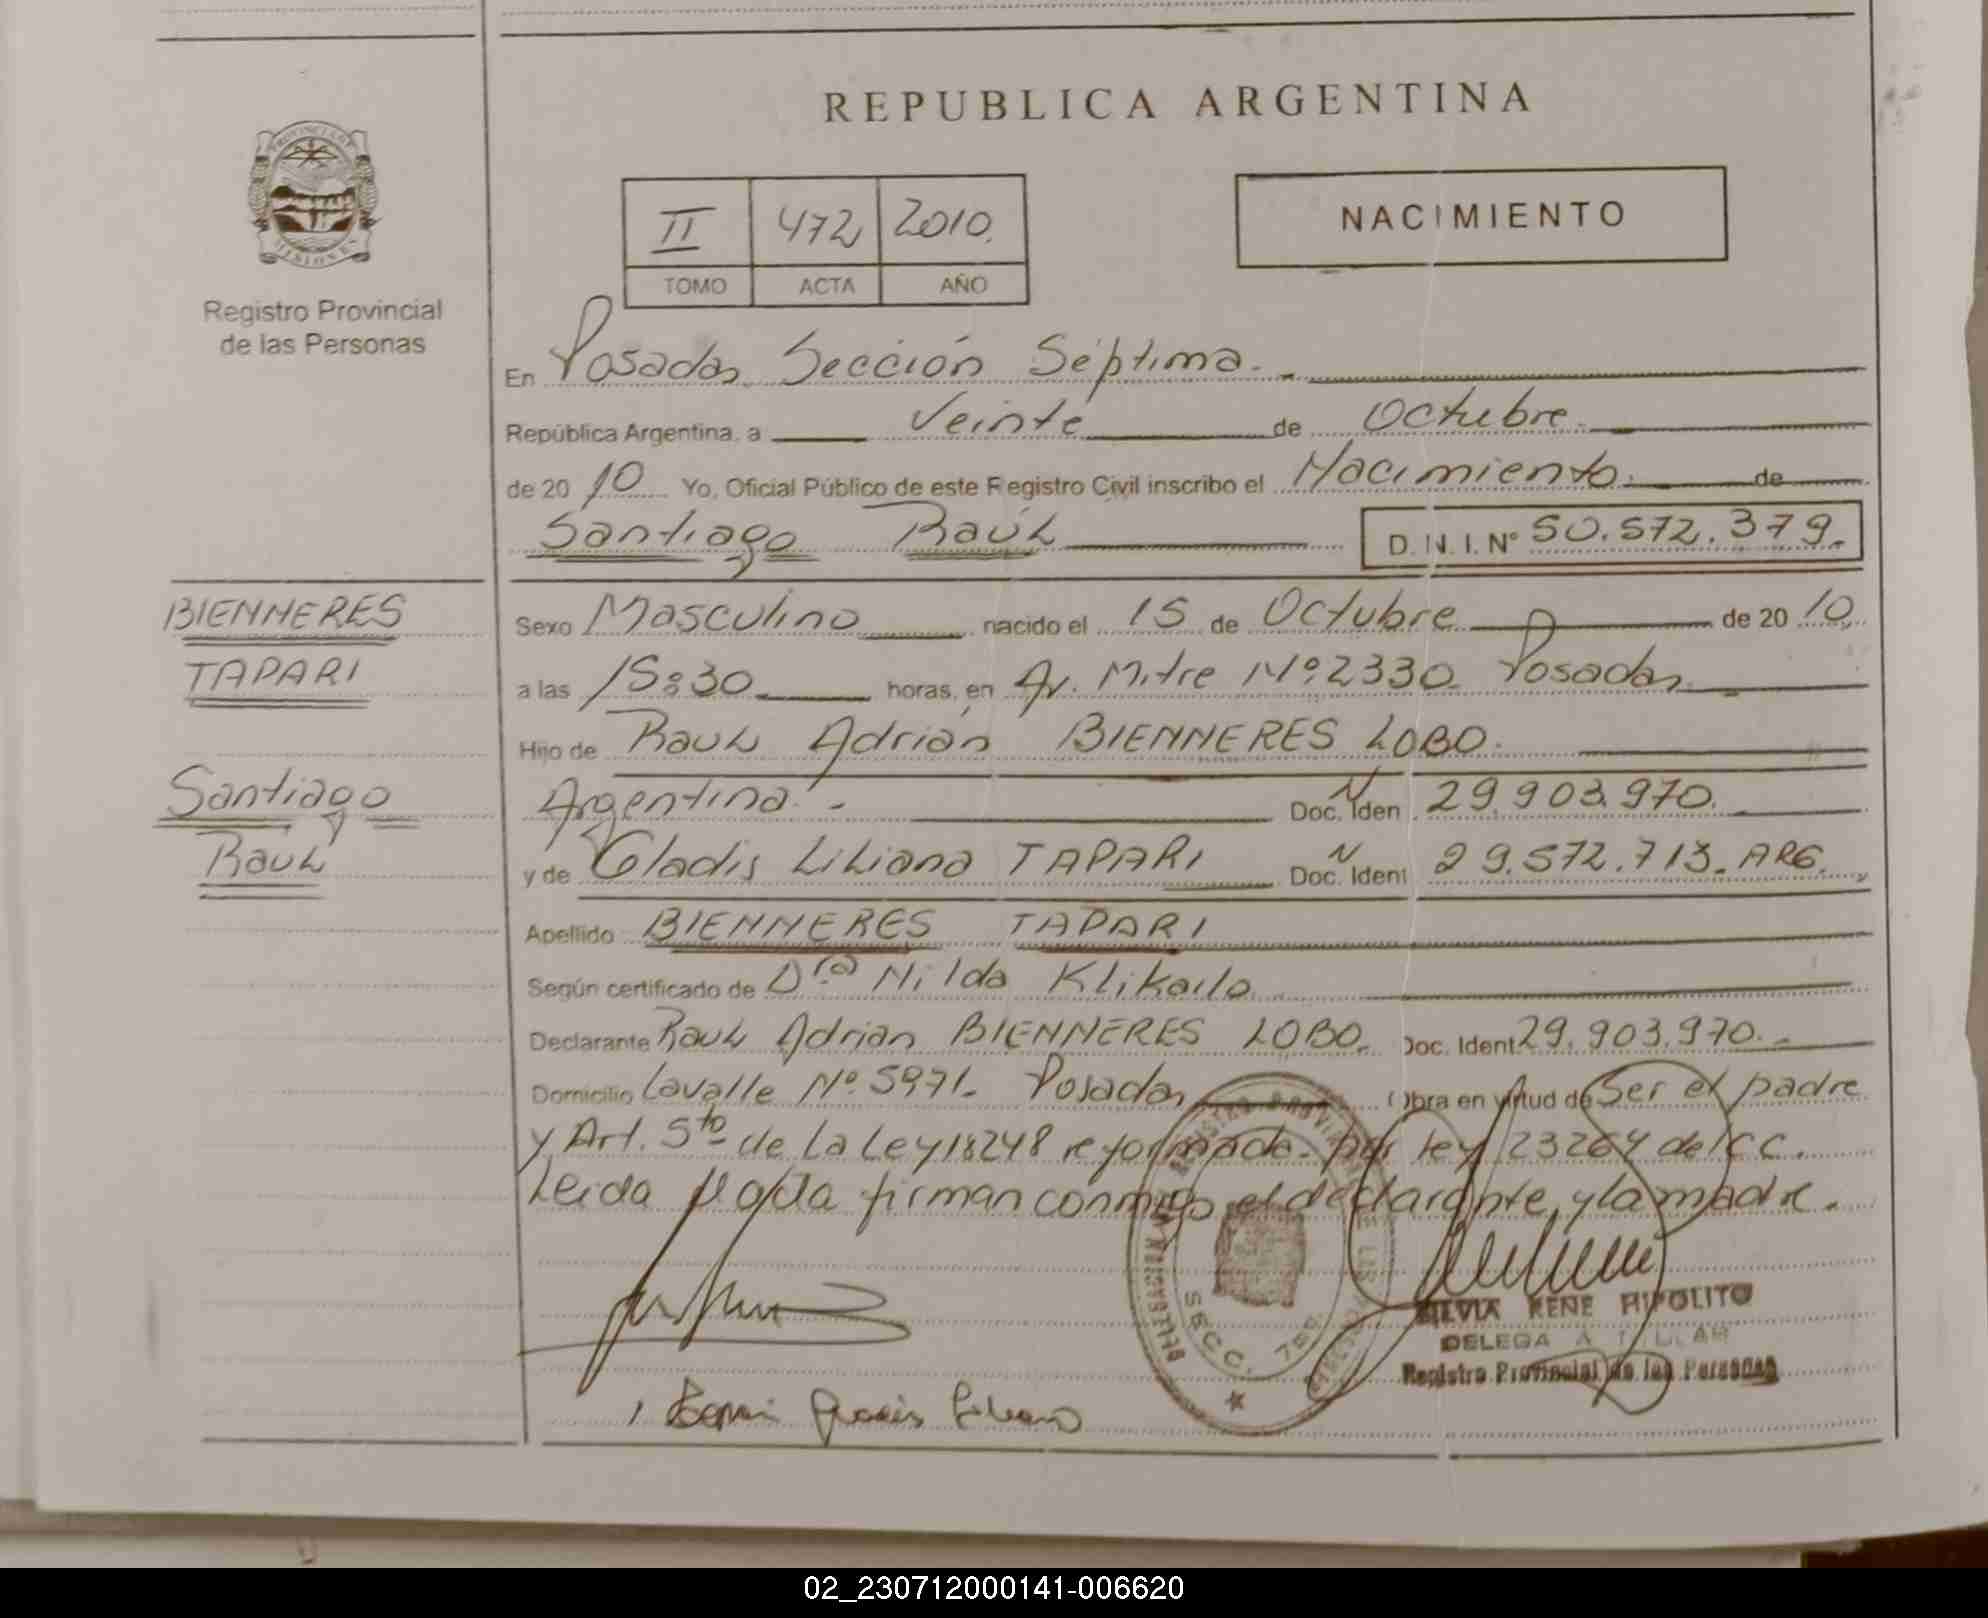 REPUBLICA ARGENTINA
PROVINCIA DE
MISIONES
Registro Provincial
de las Personas
II 472 2010.
TOMO ACTA AÑO
NACIMIENTO
En Posadas Sección Séptima.
República Argentina, a Veinte de Octubre
de 20 10 Yo, Oficial Público de este Registro Civil inscribo el Nacimiento de
Santiago Raúl D.N.I. Nº 50.572.379.
BIENNERES
TAPARI
Santiago
Raul
Sexo Masculino nacido el 15 de Octubre de 20 10.
a las 15:30 horas, en Av. Mitre Nº 2330 Posadas
Hijo de Raul Adrián BIENNERES LOBO.
Argentina.- Doc. Iden N 29.903.970.
y de Gladis Liliana TAPARI Doc. Ident N 29.572.713. ARG.
Apellido BIENNERES TAPARI
Según certificado de Dra Nilda Klikailo
Declarante Raul Adrian BIENNERES LOBO. Doc. Ident 29.903.970.-
Domicilio Lavalle Nº 5971- Posadas Obra en virtud de Ser el padre
y Art. 5to de la Ley 18248 reformada por ley 23264 del C C.
Leida el acta firman conmigo el declarante y la madre.
SECC. 7ma
SILVIA RENE HIPOLITO
DELEGA A TITULAR
Registro Provincial de las Personas
02_230712000141-006620